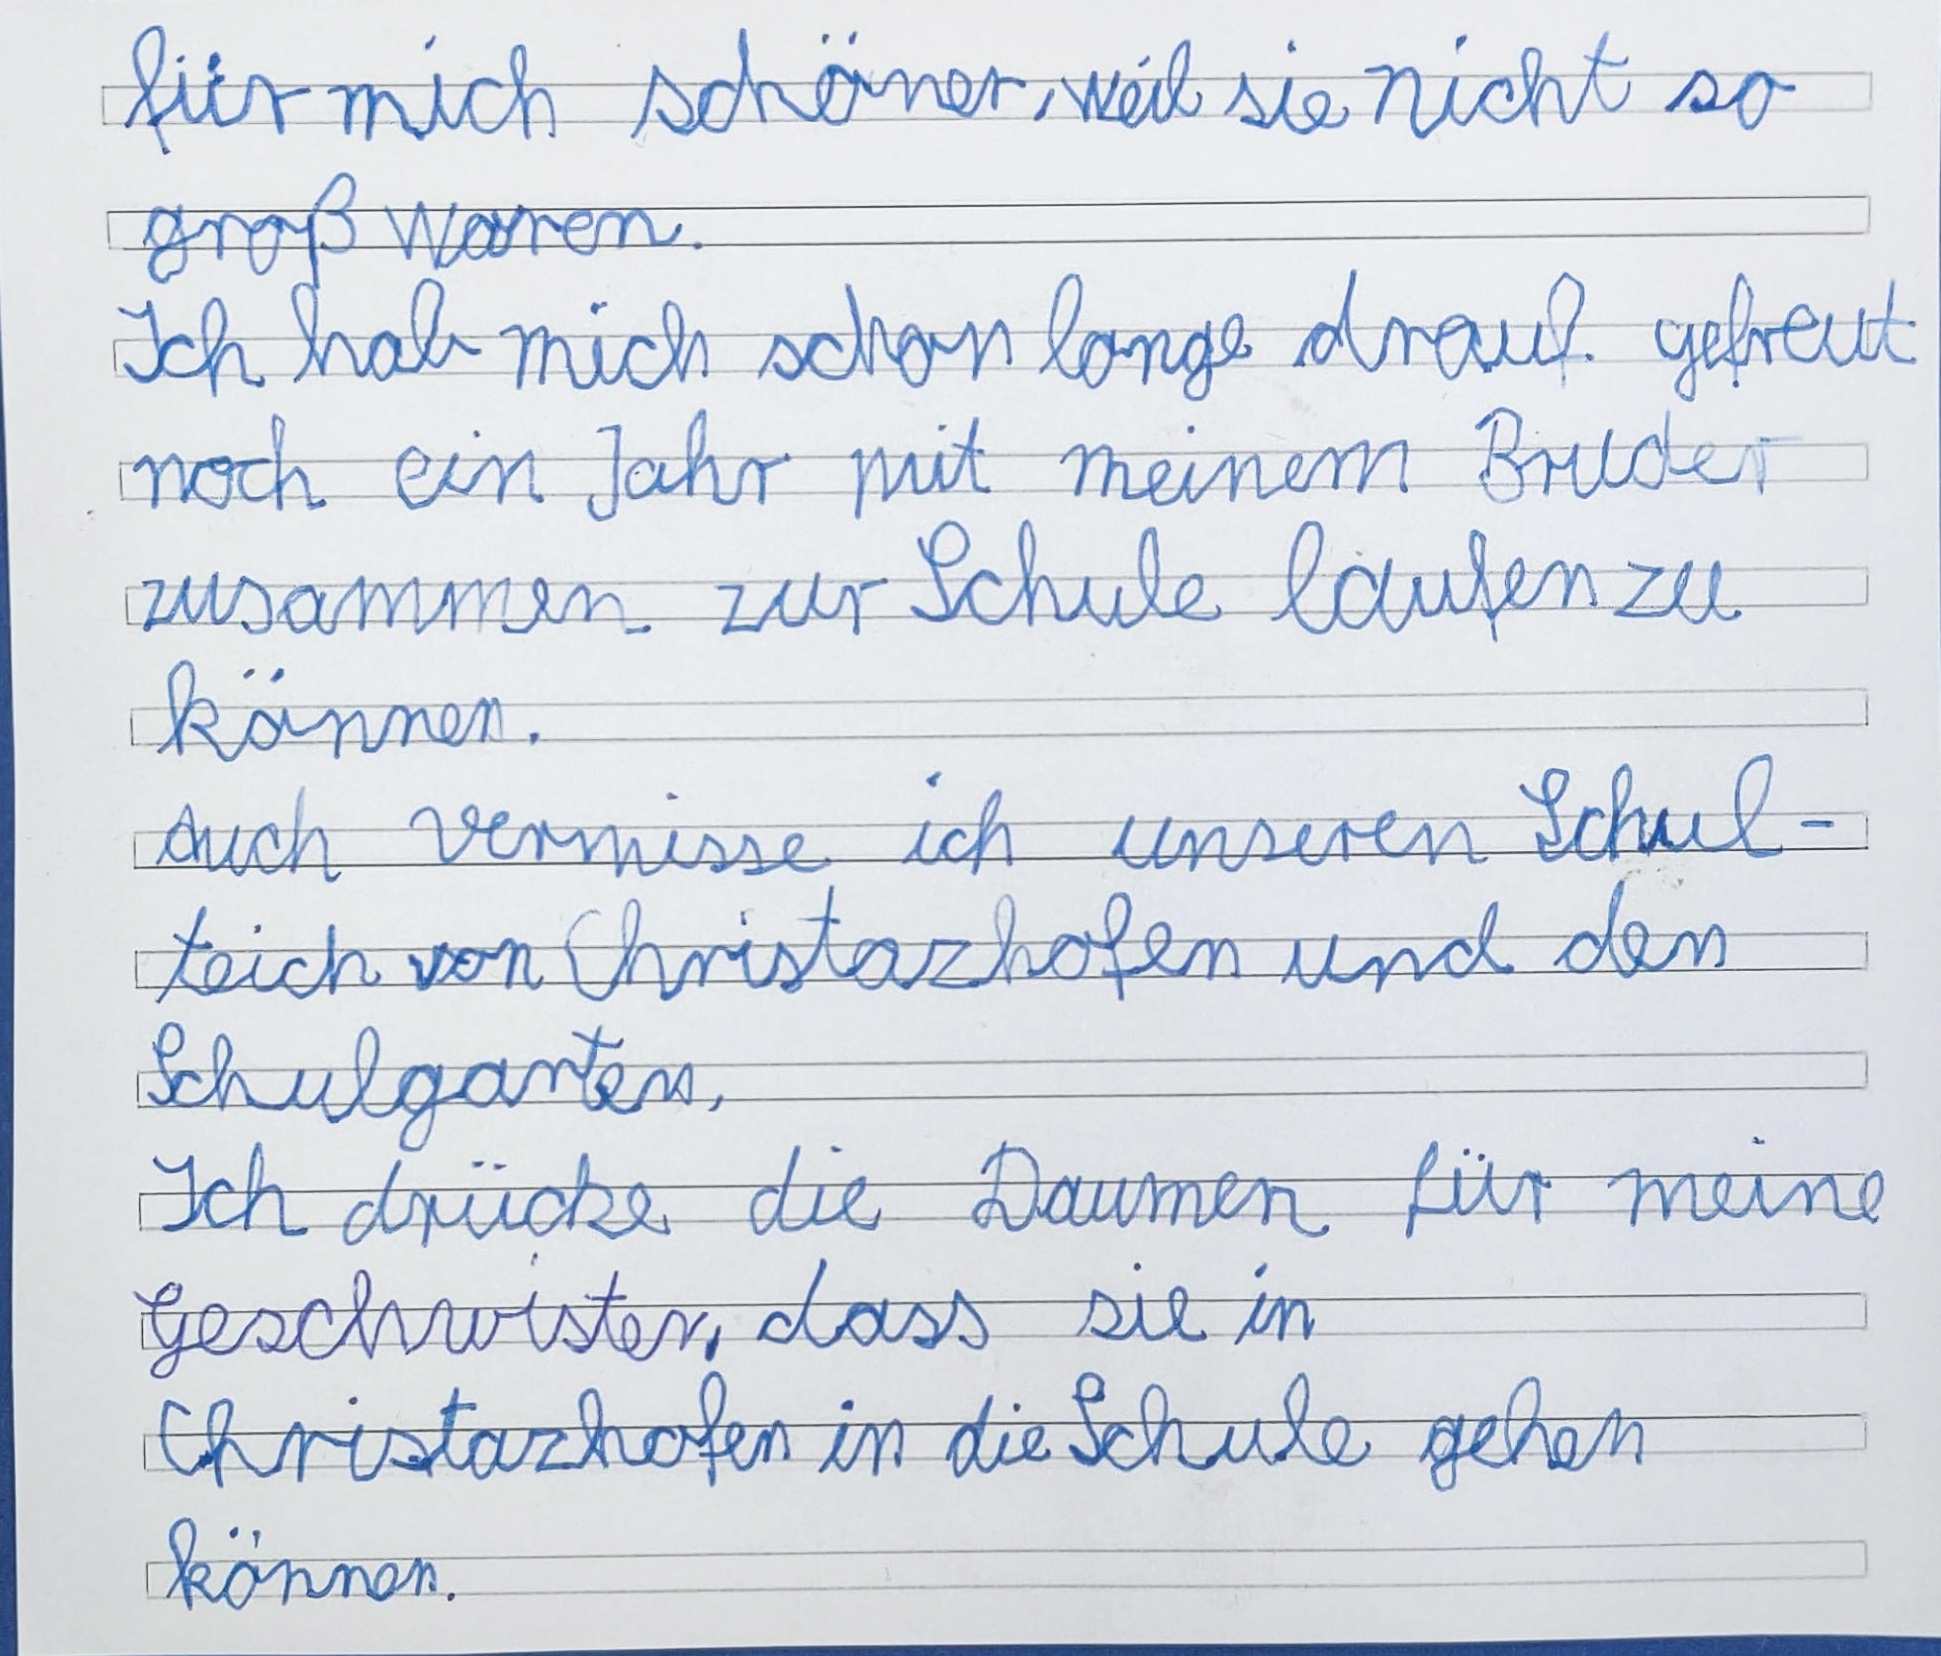 für mich schöner, weil sie nicht so
groß waren.
Ich hab mich schon lange drauf gefreut
noch ein Jahr mit meinem Bruder
zusammen zur Schule laufen zu
können.
Auch vermisse ich unseren Schul-
teich von Christazhofen und den
Schulgarten.
Ich drücke die Daumen für meine
Geschwister, dass sie in
Christazhofen in die Schule gehen
können.